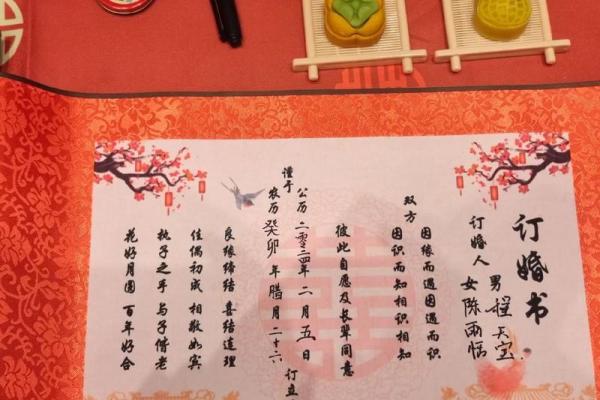 订婚书
订婚人 男程天宝
女陈雨恬
双方
因缘而遇因遇而识
因识而知相识相知
彼此自愿及长辈同意
谨于
公历二零二四年二月五日
农历癸卯年腊月二十六 订立
良缘缔结 喜结连理
佳偶初成 相敬如宾
执子之手 与子偕老
花好月圆 百年好合